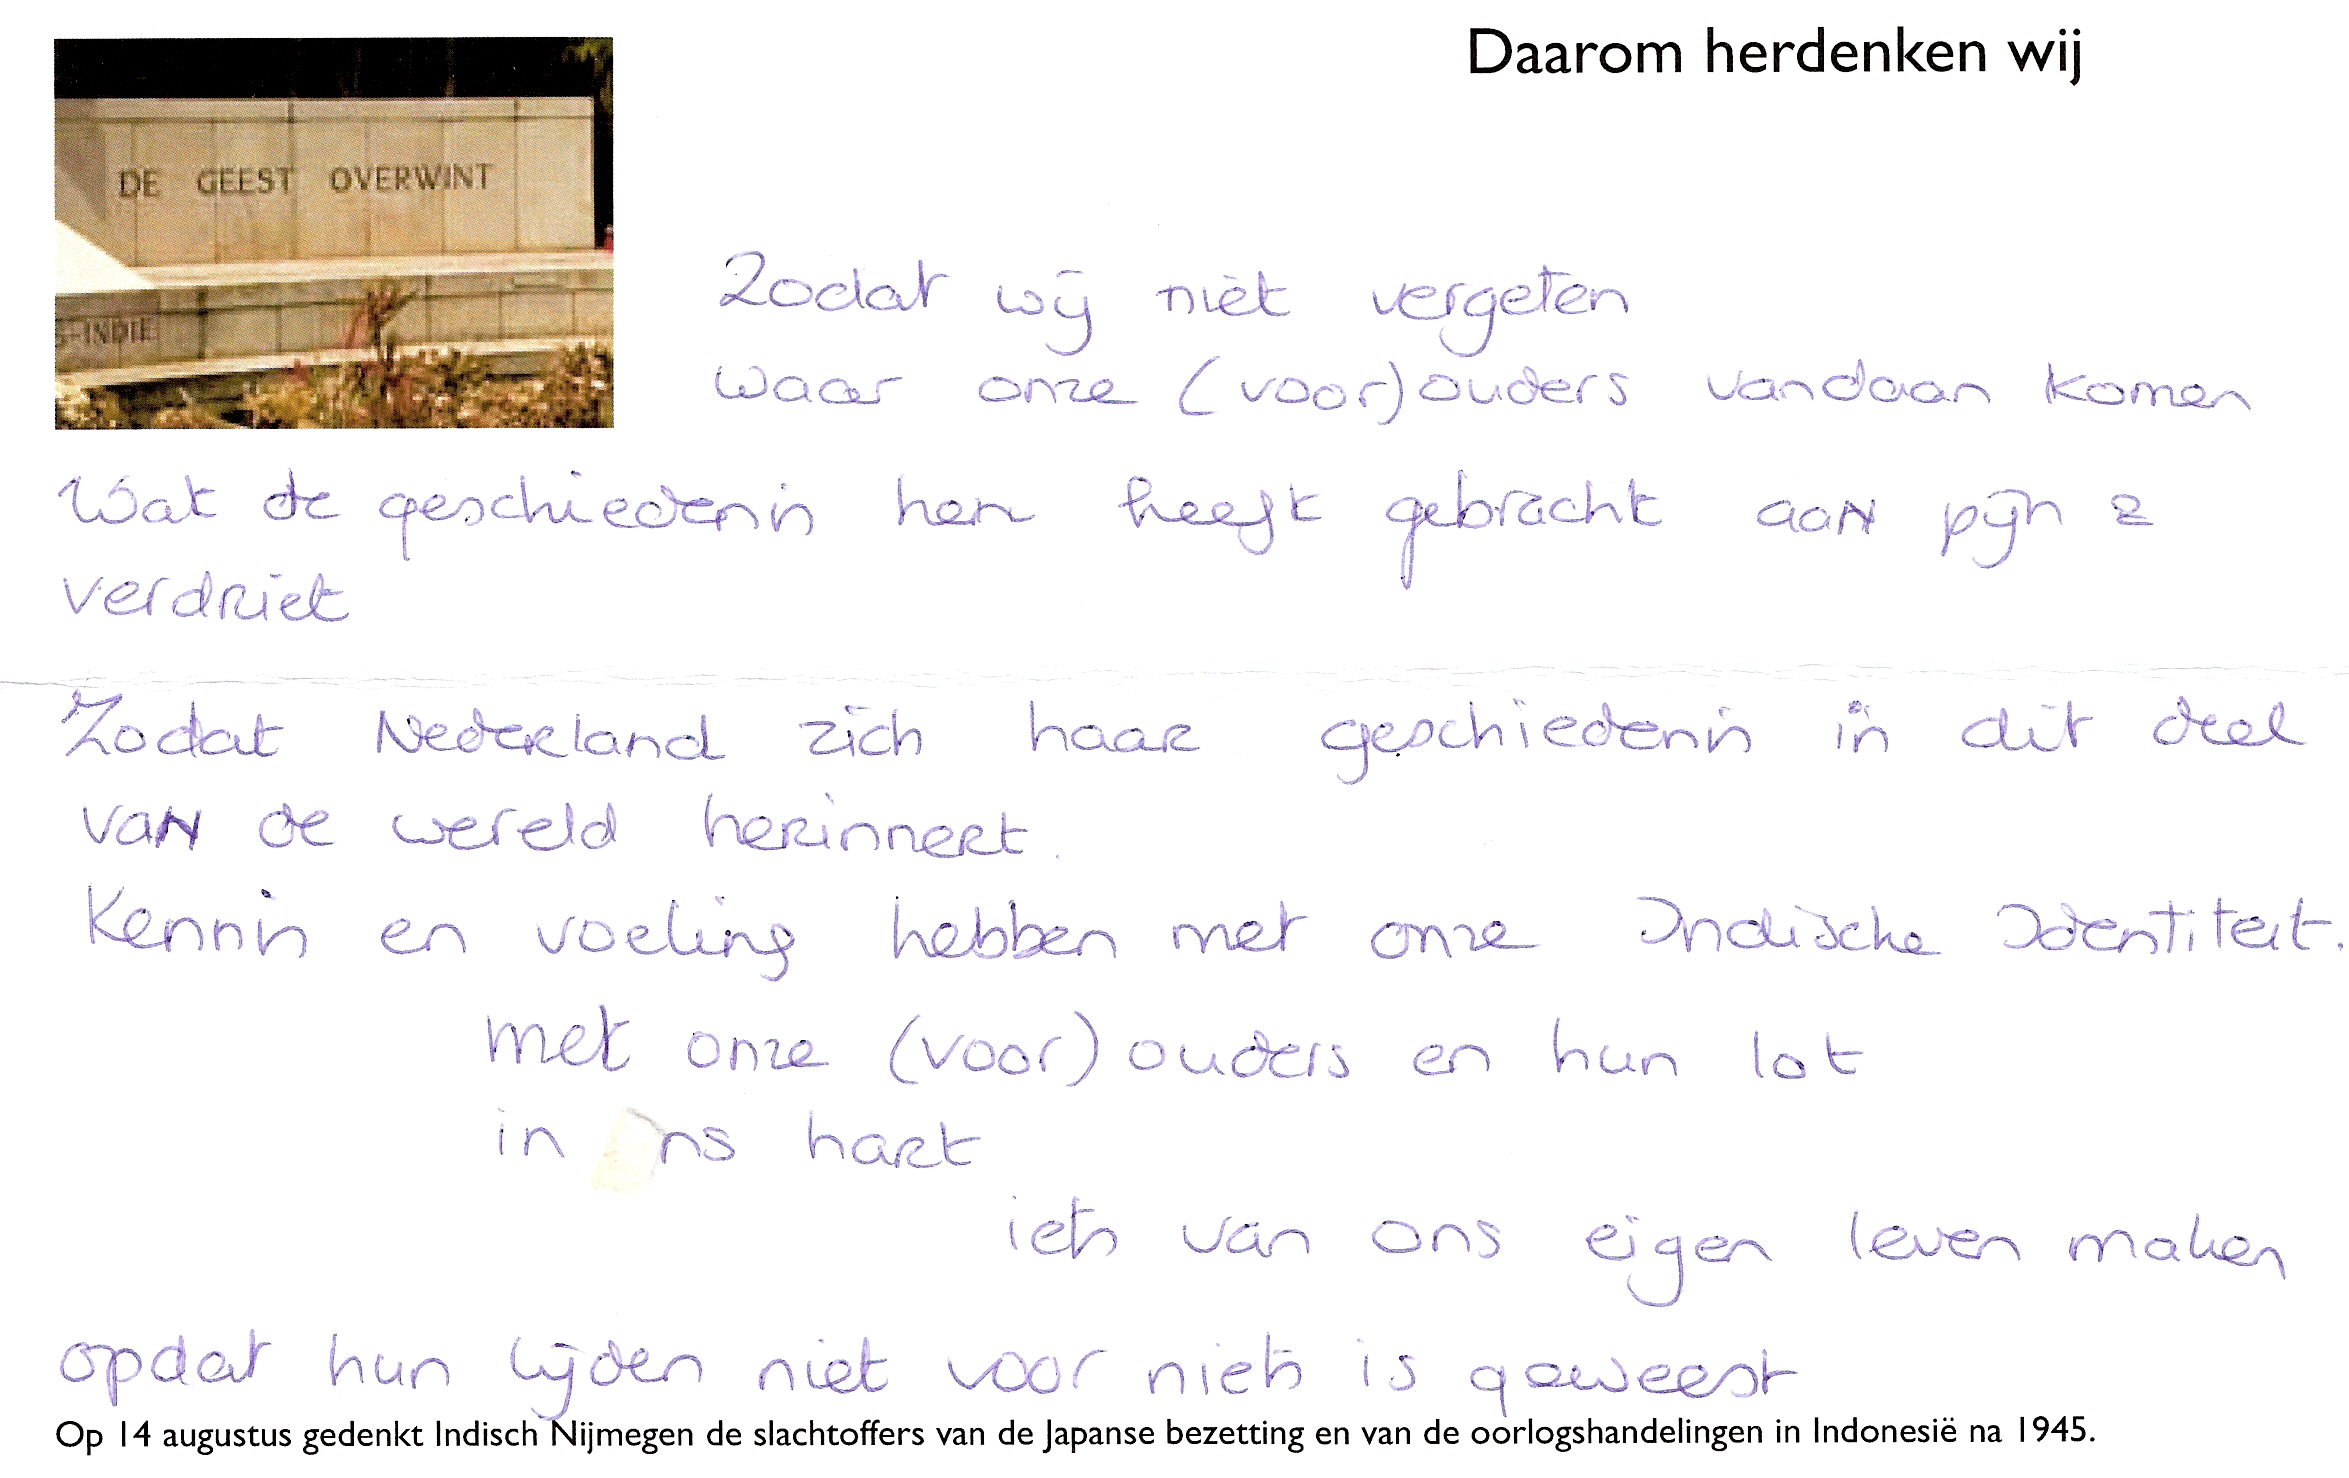 Daarom herdenken wij
DE GEEST OVERWINT
S-INDIE
Zodat wij niet vergeten
waar onze (voor)ouders vandaan komen
Wat de geschiedenis hen heeft gebracht aan pijn &
verdriet
Zodat Nederland zich haar geschiedenis in dit deel
van de wereld herinnert.
Kennis en voeling hebben met onze Indische Identiteit.
met onze (voor)ouders en hun lot
in ns hart
iets van ons eigen leven maken
opdat hun lijden niet voor niets is geweest
Op 14 augustus gedenkt Indisch Nijmegen de slachtoffers van de Japanse bezetting en van de oorlogshandelingen in Indonesië na 1945.